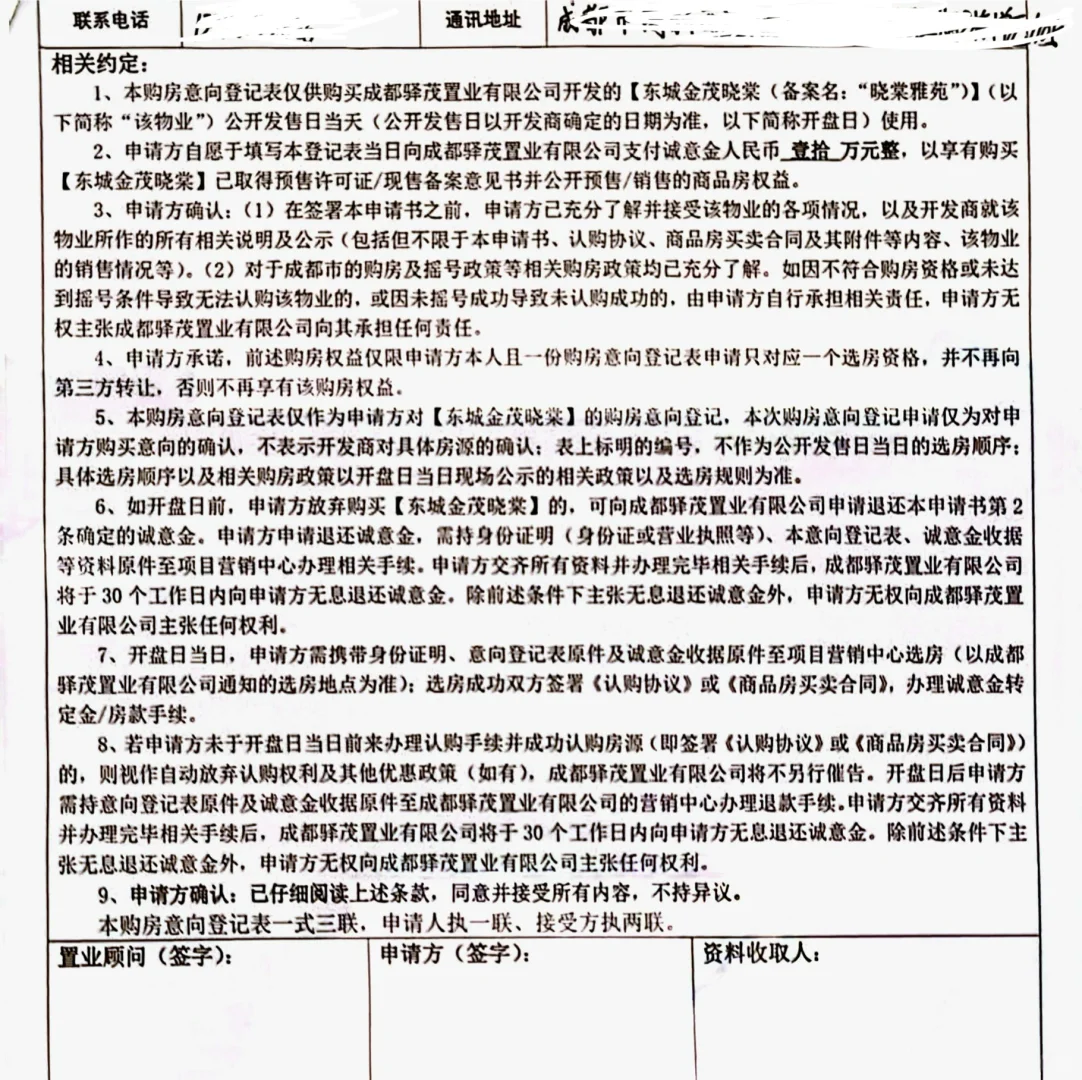 联系电话 通讯地址 成都市
相关约定：
1、本购房意向登记表仅供购买成都驿茂置业有限公司开发的【东城金茂晓棠（备案名：“晓棠雅苑”）】（以
下简称“该物业”）公开发售日当天（公开发售日以开发商确定的日期为准，以下简称开盘日）使用。
2、申请方自愿于填写本登记表当日向成都驿茂置业有限公司支付诚意金人民币 壹拾 万元整，以享有购买
【东城金茂晓棠】已取得预售许可证/现售备案意见书并公开预售/销售的商品房权益。
3、申请方确认：（1）在签署本申请书之前，申请方已充分了解并接受该物业的各项情况，以及开发商就该
物业所作的所有相关说明及公示（包括但不限于本申请书、认购协议、商品房买卖合同及其附件等内容、该物业
的销售情况等）。（2）对于成都市的购房及摇号政策等相关购房政策均已充分了解。如因不符合购房资格或未达
到摇号条件导致无法认购该物业的，或因未摇号成功导致未认购成功的，由申请方自行承担相关责任，申请方无
权主张成都驿茂置业有限公司向其承担任何责任。
4、申请方承诺，前述购房权益仅限申请方本人且一份购房意向登记表申请只对应一个选房资格，并不再向
第三方转让，否则不再享有该购房权益。
5、本购房意向登记表仅作为申请方对【东城金茂晓棠】的购房意向登记，本次购房意向登记申请仅为对申
请方购买意向的确认，不表示开发商对具体房源的确认；表上标明的编号，不作为公开发售日当日的选房顺序；
具体选房顺序以及相关购房政策以开盘日当日现场公示的相关政策以及选房规则为准。
6、如开盘日前，申请方放弃购买【东城金茂晓棠】的，可向成都驿茂置业有限公司申请退还本申请书第2
条确定的诚意金。申请方申请退还诚意金，需持身份证明（身份证或营业执照等）、本意向登记表、诚意金收据
等资料原件至项目营销中心办理相关手续。申请方交齐所有资料并办理完毕相关手续后，成都驿茂置业有限公司
将于30个工作日内向申请方无息退还诚意金。除前述条件下主张无息退还诚意金外，申请方无权向成都驿茂置
业有限公司主张任何权利。
7、开盘日当日，申请方需携带身份证明、意向登记表原件及诚意金收据原件至项目营销中心选房（以成都
驿茂置业有限公司通知的选房地点为准）；选房成功双方签署《认购协议》或《商品房买卖合同》，办理诚意金转
定金/房款手续。
8、若申请方未于开盘日当日前来办理认购手续并成功认购房源（即签署《认购协议》或《商品房买卖合同》）
的，则视作自动放弃认购权利及其他优惠政策（如有），成都驿茂置业有限公司将不另行催告。开盘日后申请方
需持意向登记表原件及诚意金收据原件至成都驿茂置业有限公司的营销中心办理退款手续。申请方交齐所有资料
并办理完毕相关手续后，成都驿茂置业有限公司将于30个工作日内向申请方无息退还诚意金。除前述条件下主
张无息退还诚意金外，申请方无权向成都驿茂置业有限公司主张任何权利。
9、申请方确认：已仔细阅读上述条款，同意并接受所有内容，不持异议。
本购房意向登记表一式三联，申请人执一联、接受方执两联。
置业顾问（签字）： 申请方（签字）： 资料收取人：